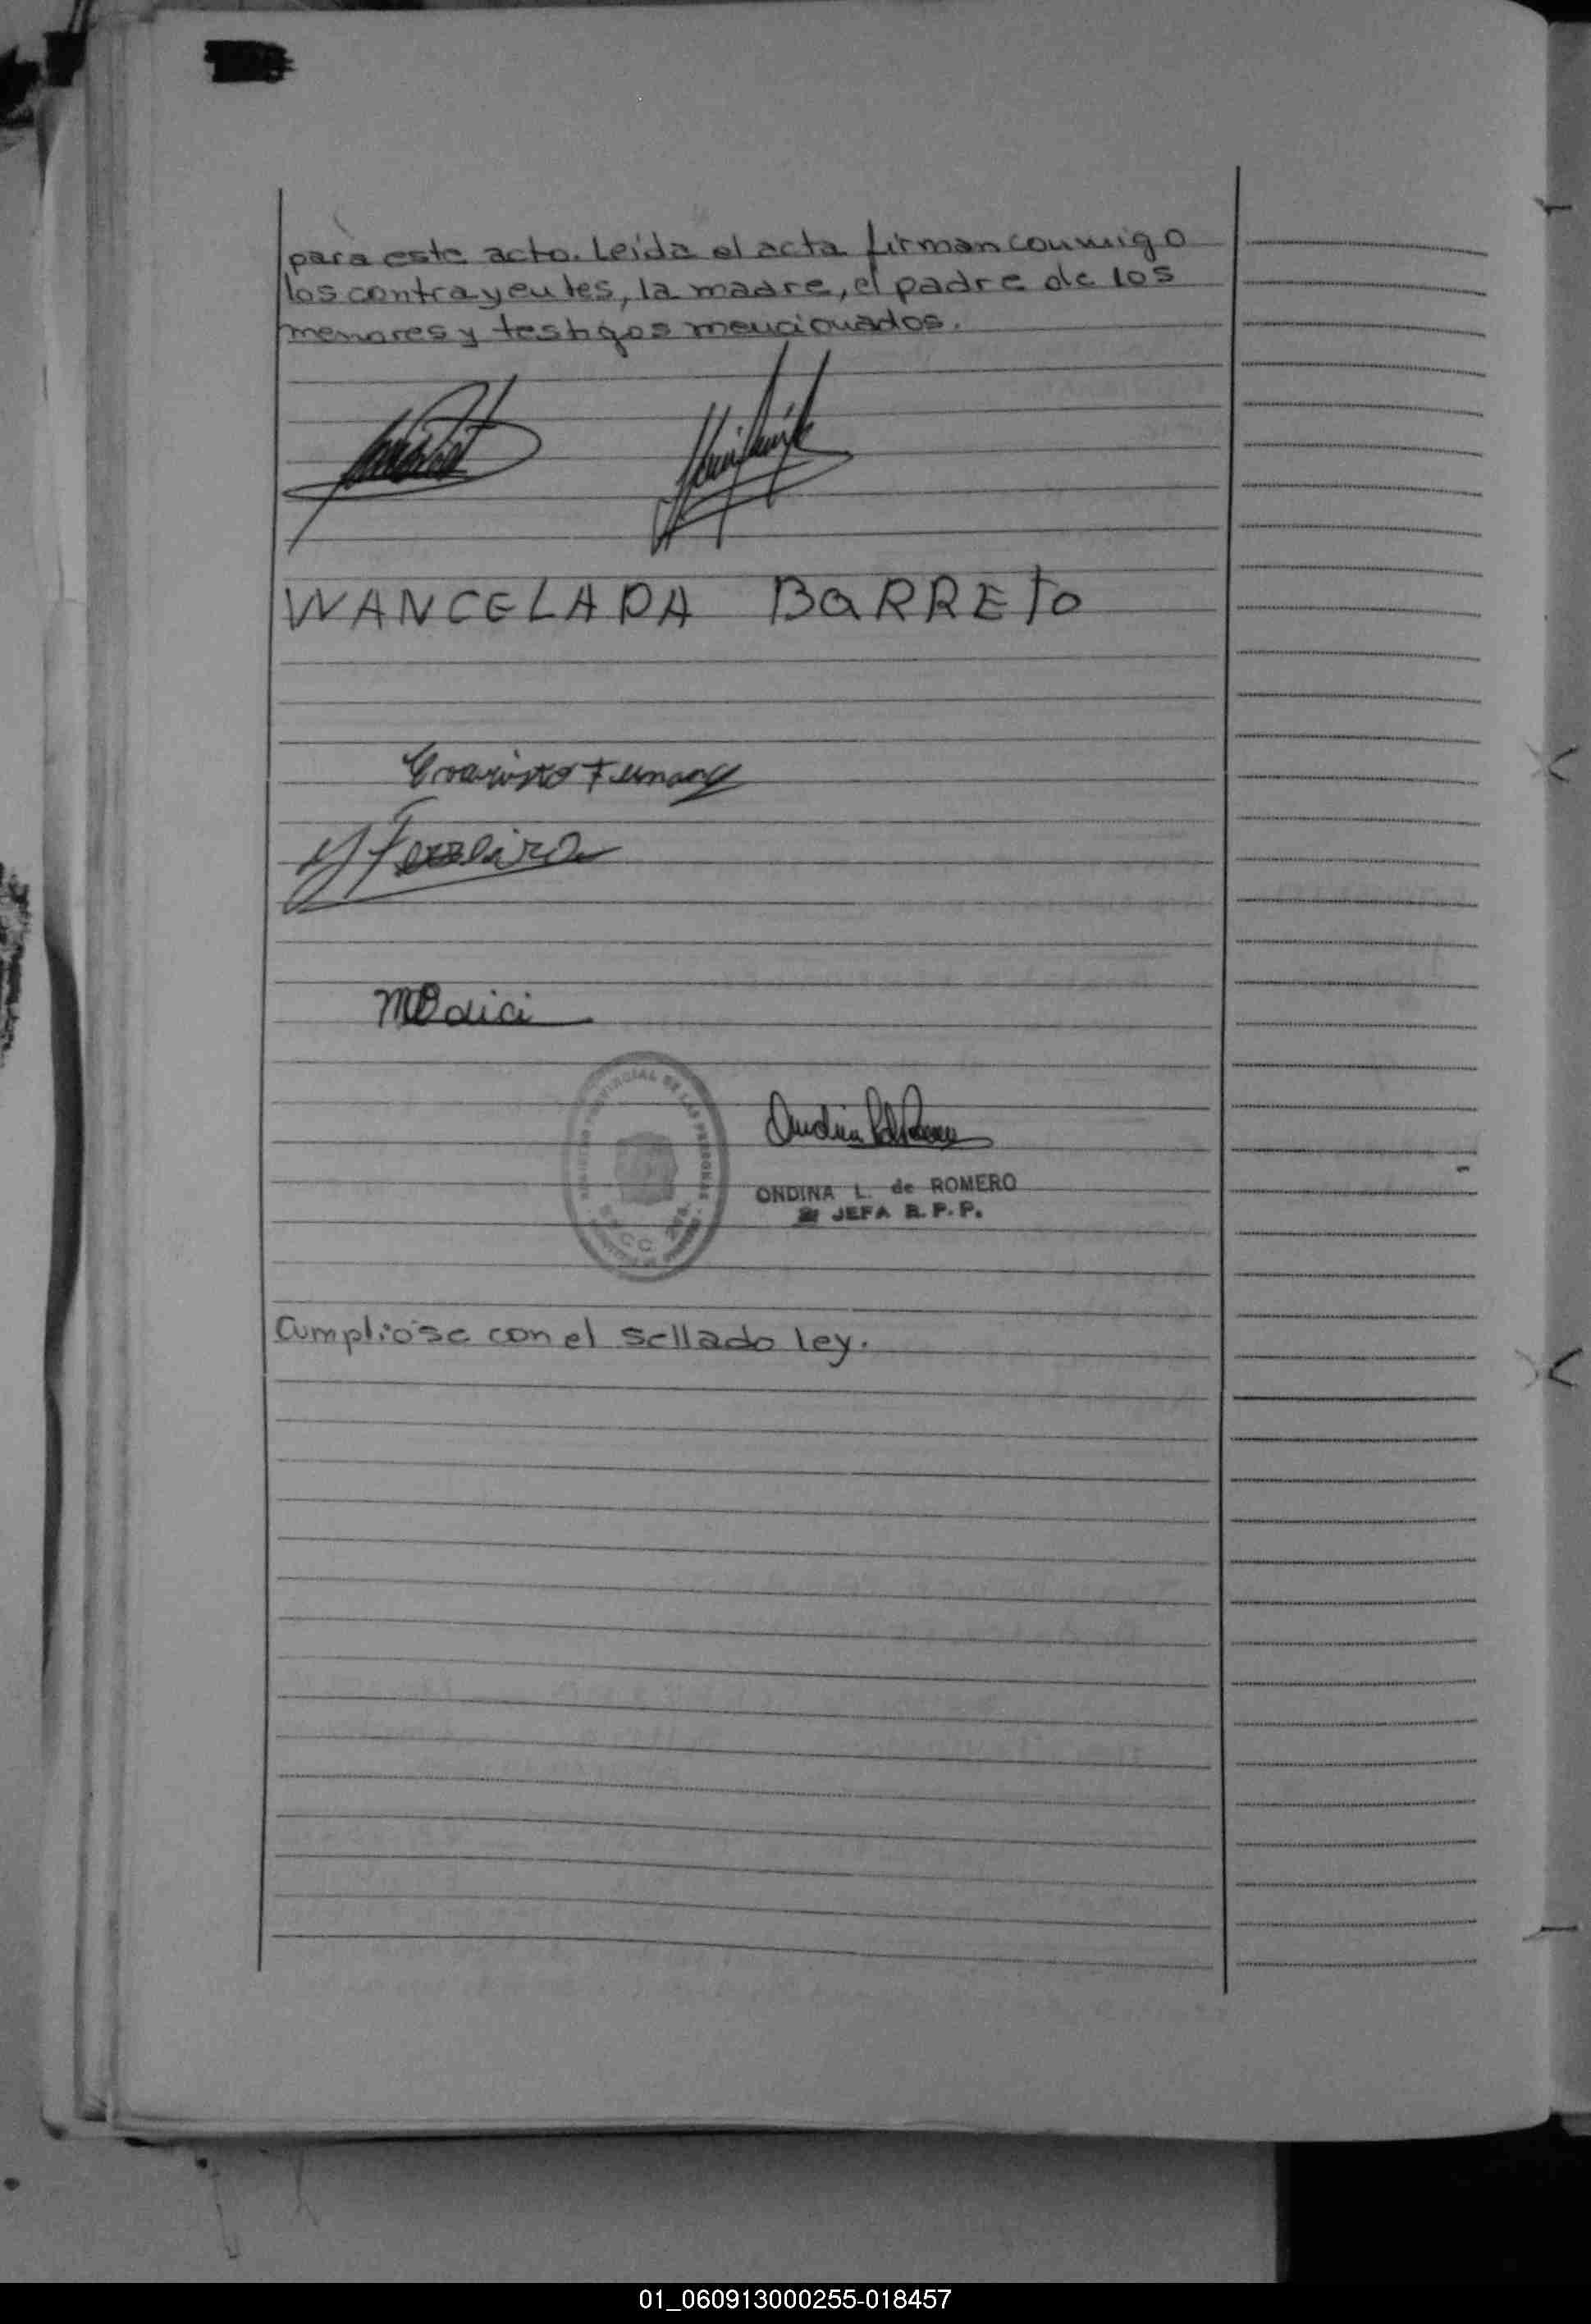 para este acto. Leída el acta firman conmigo
los contrayentes, la madre, el padre de los
menores y testigos mencionados.
WANCELADA BARRETO
Evaristo
Ferreira
ONDINA L. de ROMERO
JEFA R. P. P.
PROVINCIAL DE LAS PERSONAS
Cumplióse con el sellado ley.
01_060913000255-018457